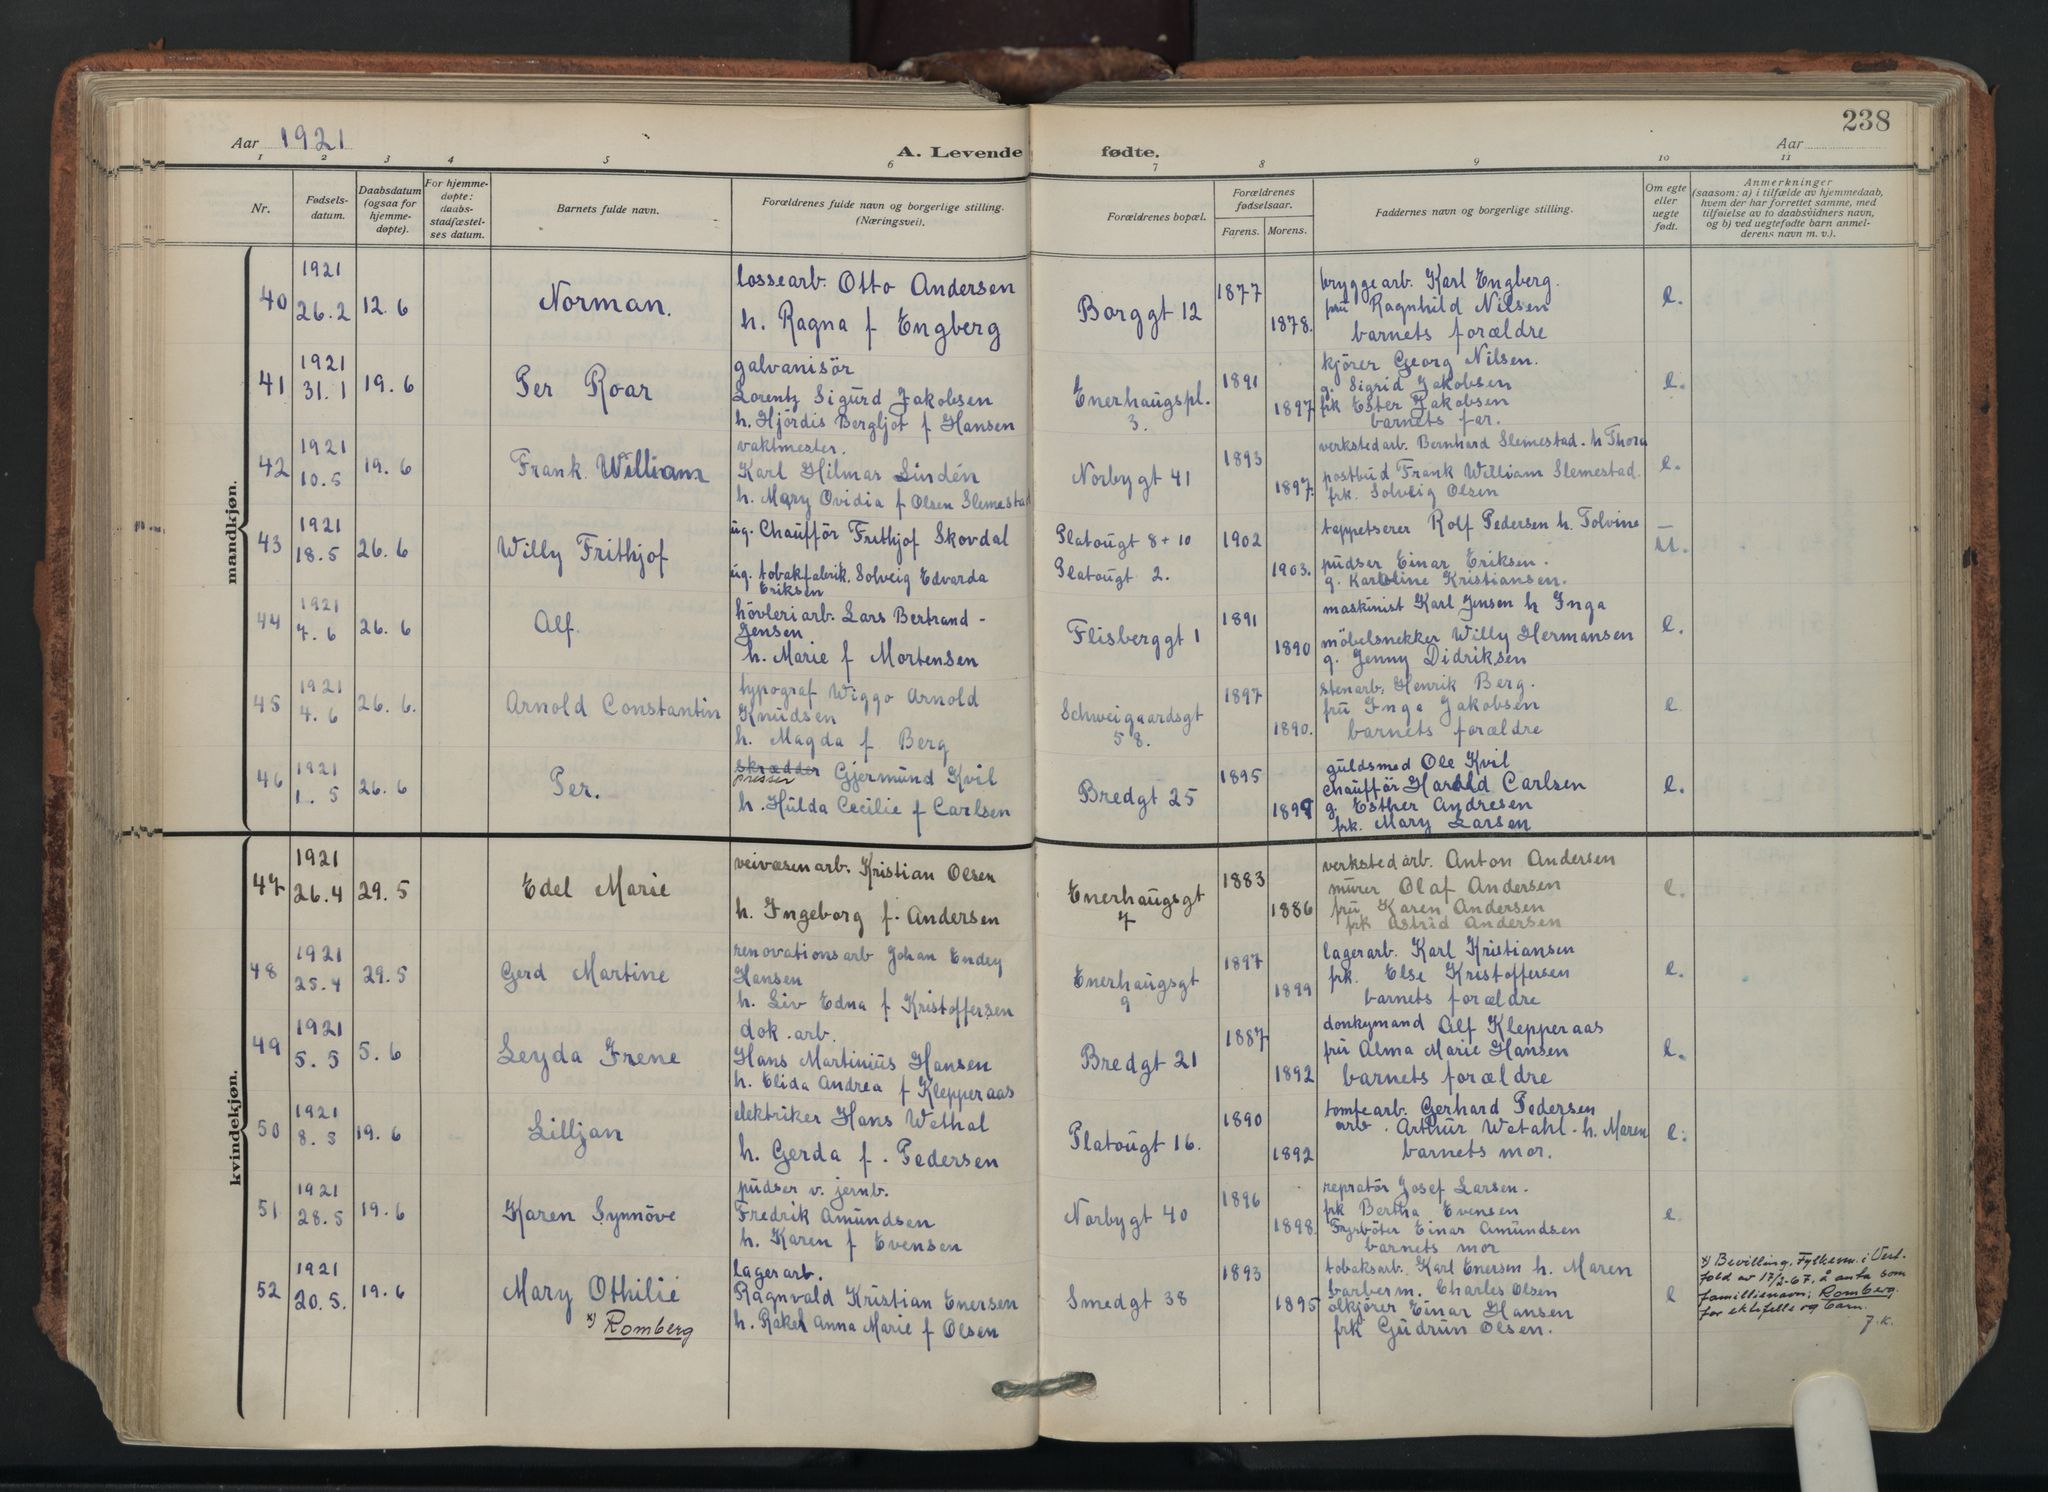 238
Aar 1921
A. Levende fødte.
Aar
1 2 3 4 5 6 7 8 9 10 11
Nr.
Fødsels-
datum.
Daabsdatum
(ogsaa for
hjemme-
døpte).
For hjemme-
døpte:
daabs-
stadfæstel-
ses datum.
Barnets fulde navn.
Forældrenes fulde navn og borgerlige stilling.
(Næringsvei).
Forældrenes bopæl.
Forældrenes
fødselsaar.
Farens. Morens.
Faddernes navn og borgerlige stilling.
Om egte
eller
uegte
født.
Anmerkninger
(saasom: a) i tilfælde av hjemmedaab,
hvem der har forrettet samme, med
tilføielse av to daabsvidners navn,
og b) ved uegtefødte barn anmel-
derens navn m. v.).
mandkjøn.
40
1921
26.2
12.6
Norman.
lossearb. Otto Andersen
h. Ragna f Engberg
Borggt 12
1877
1878.
bryggearb. Karl Engberg.
fru Ragnhild Nilsen
barnets forældre
e.
41
1921
31.1
19.6
Per Roar
galvanisör
Lorentz Sigurd Jakobsen
h. Hjördis Bergljot f Hansen
Enerhaugspl.
3.
1891
1897
kjörer Georg Nilsen.
g. Sigrid Jakobsen
frk Ester Jakobsen
barnets far.
e.
42
1921
10.5
19.6
Frank William
vaktmester.
Karl Hilmar Lindén
h. Mary Ovidia f Olsen Slemestad
Norbygt 41
1893
1897.
verkstedarb. Bernhard Slemestad - h Thora
postbud Frank William Slemestad.
frk. Solveig Olsen
e.
43
1921
18.5
26.6
Willy Frithjof
ug. Chaufför Frithjof Skovdal
ug. tobakfabrik. Solveig Edvarda
Eriksen
Platougt 8 + 10
Platougt 2.
1902
1903.
tappetserer Rolf Pedersen h. Tolvine
pudser Einar Eriksen.
g. Karoline Kristiansen.
—
U.
44
1921
7.6
26.6
Alf.
hövleriarb. Lars Bertrand -
Jensen
h. Marie f Mortensen
Flisberggt 1
1891
1890
maskinist Karl Jensen h Inga
möbelsnekker Willy Hermansen
g. Jenny Didriksen
e.
45
1921
4.6
26.6.
Arnold Constantin
typograf Wiggo Arnold
Knudsen
h. Magda f. Berg
Schweigaardsgt
58.
1897
1890.
stenarb. Henrik Berg.
fru Inga Jakobsen
barnets forældre
e
46
1921
1.5
26.6
Per.
skrædder Gjermund Kvil
presser
h. Hulda Cecilie f Carlsen
Bredgt 25
1895
1899
guldsmed Ole Kvil
chaufför Harald Carlsen
g. Esther Andresen
frk. Mary Larsen
e.
kvindekjøn.
47
1921
26.4
29.5
Edel Marie
veivæsenarb. Kristian Olsen
h. Ingeborg f. Andersen
Enerhaugsgt
7
1883
1886
verkstedarb. Anton Andersen
murer Olaf Andersen
fru Karen Andersen
frk Astrid Andersen
e.
48
1921
25.4
29.5
Gerd Martine
renovationsarb Johan Endey
Hansen
h. Liv Edna f Kristoffersen
Enerhaugsgt
9
1897
1899
lagerarb. Karl Kristiansen
frk. Else Kristoffersen
barnets forældre
e.
49
1921
5.5
5.6
Leyda Irene
dok. arb.
Hans Martinius Hansen
h. Elida Andrea f Klepperaas
Bredgt 21
1887
1892
donkymand Alf Klepperaas
fru Alma Marie Hansen
barnets forældre
e.
50
1921
8.5
19.6
Lilljan
elektriker Hans Wethal
h. Gerda f. Pedersen
Platougt 16.
1890
1892
tomtearb. Gerhard Pedersen
arb. Arthur Wetahl - h. Maren
barnets mor.
e.
51
1921
28.5
19.6
Karen Synnöve
pudser v. jernb.
Fredrik Amundsen
h. Karen f Evensen
Norbygt 40
1896
1898.
repratör Josef Larsen.
frk Bertha Evensen
Fyrböter Einar Amundsen
barnets mor
e.
52
1921
20.5.
19.6
Mary Othilie
x) Romberg
lagerarb.
Ragnvald Kristian Enersen
h. Rakel Anna Marie f Olsen
Smedgt 38
1893
1895
tobaksarb. Karl Enersen h. Maren
barberm. Charles Olsen
ölkjörer Einar Hansen
frk Gudrun Olsen.
e
x) Bevilling, Fylkesm. i Vest-
fold av 17/2-67, å anta som
familienavn: Romberg.
for ektefelle og barn.
J.K.